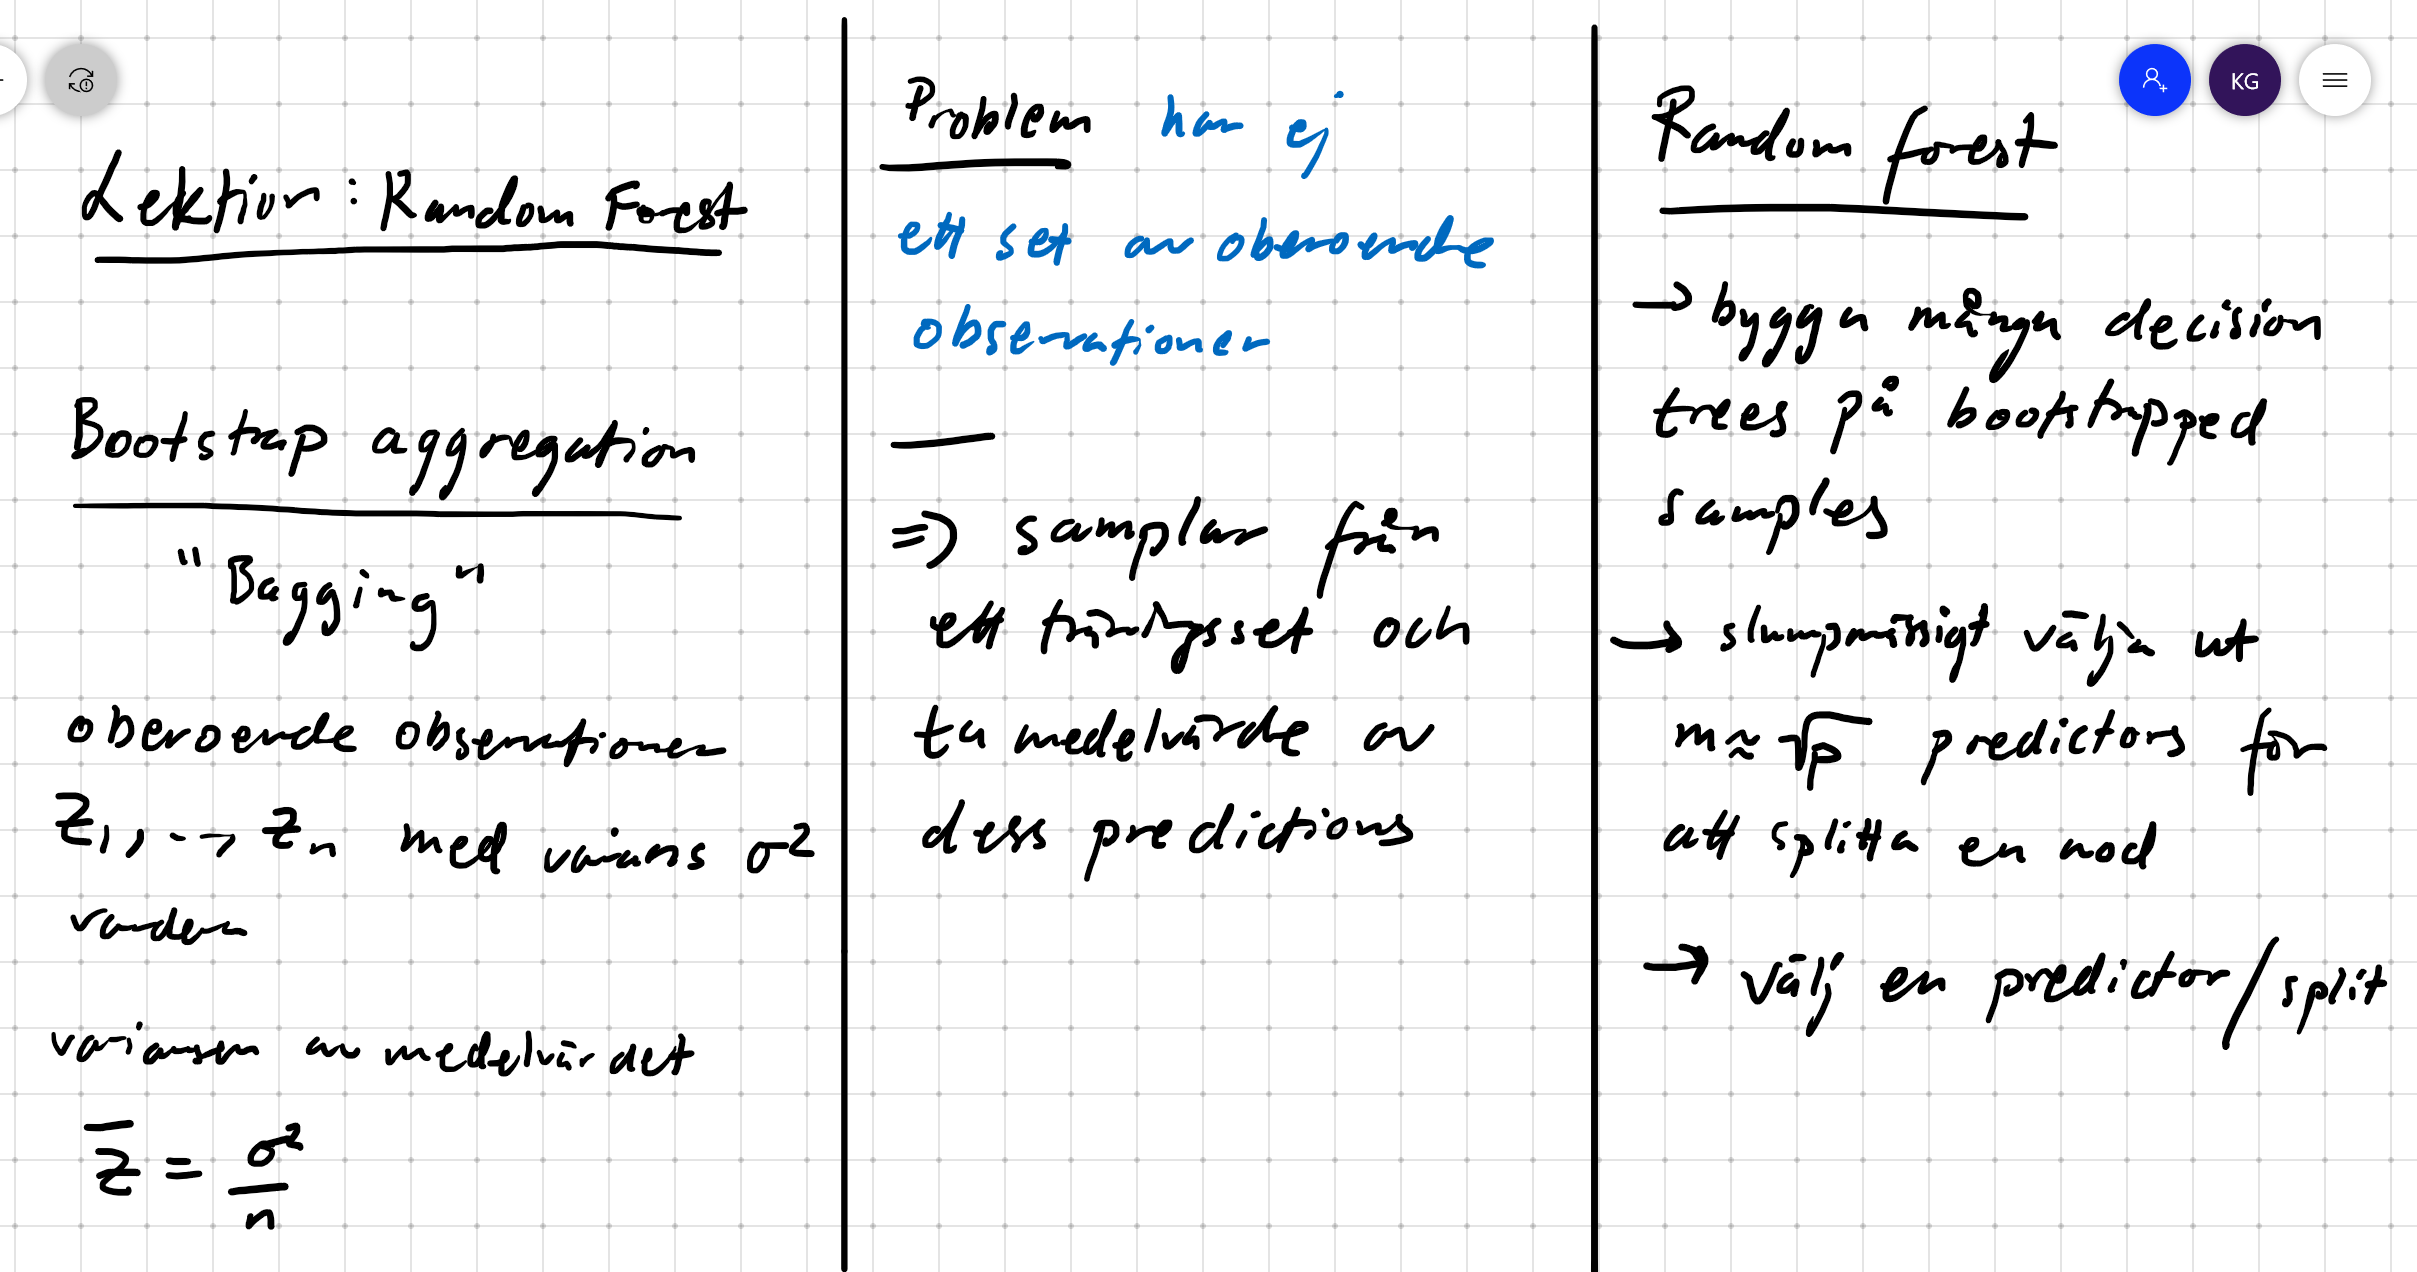 Lektion: Random Forest
Bootstrap aggregation
"Bagging"
oberoende observationer
Z₁, ..., Zₙ med varians σ²
vardera
variansen av medelvärdet
Z̄ = σ²/n
Problem har ej
ett set av oberoende
observationer
⇒ samplar från
ett träningsset och
ta medelvärde av
dess predictions
KG
Random forest
→ bygga många decision
trees på bootstrapped
samples
→ slumpmässigt välja ut
m≈√p predictors för
att splitta en nod
→ välj en predictor/split